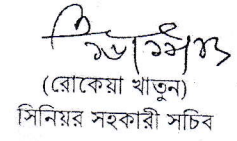 (রোকেয়া খাতুন)
সিনিয়র সহকারী সচিব